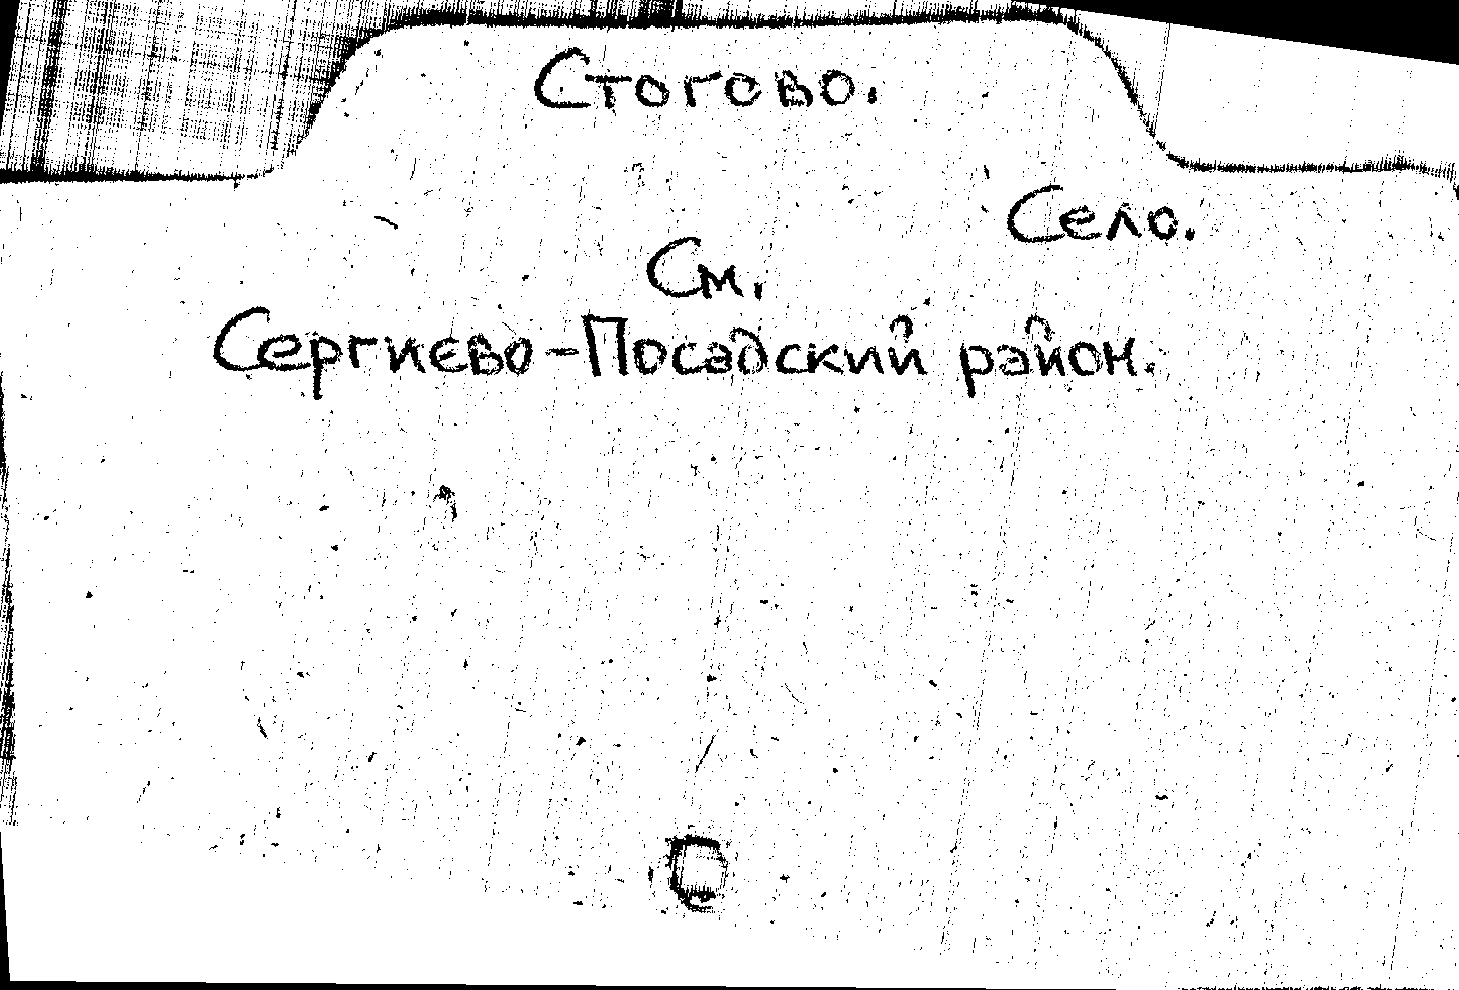 Стогово.
Село.
См.
Сергиево-Посадский район.